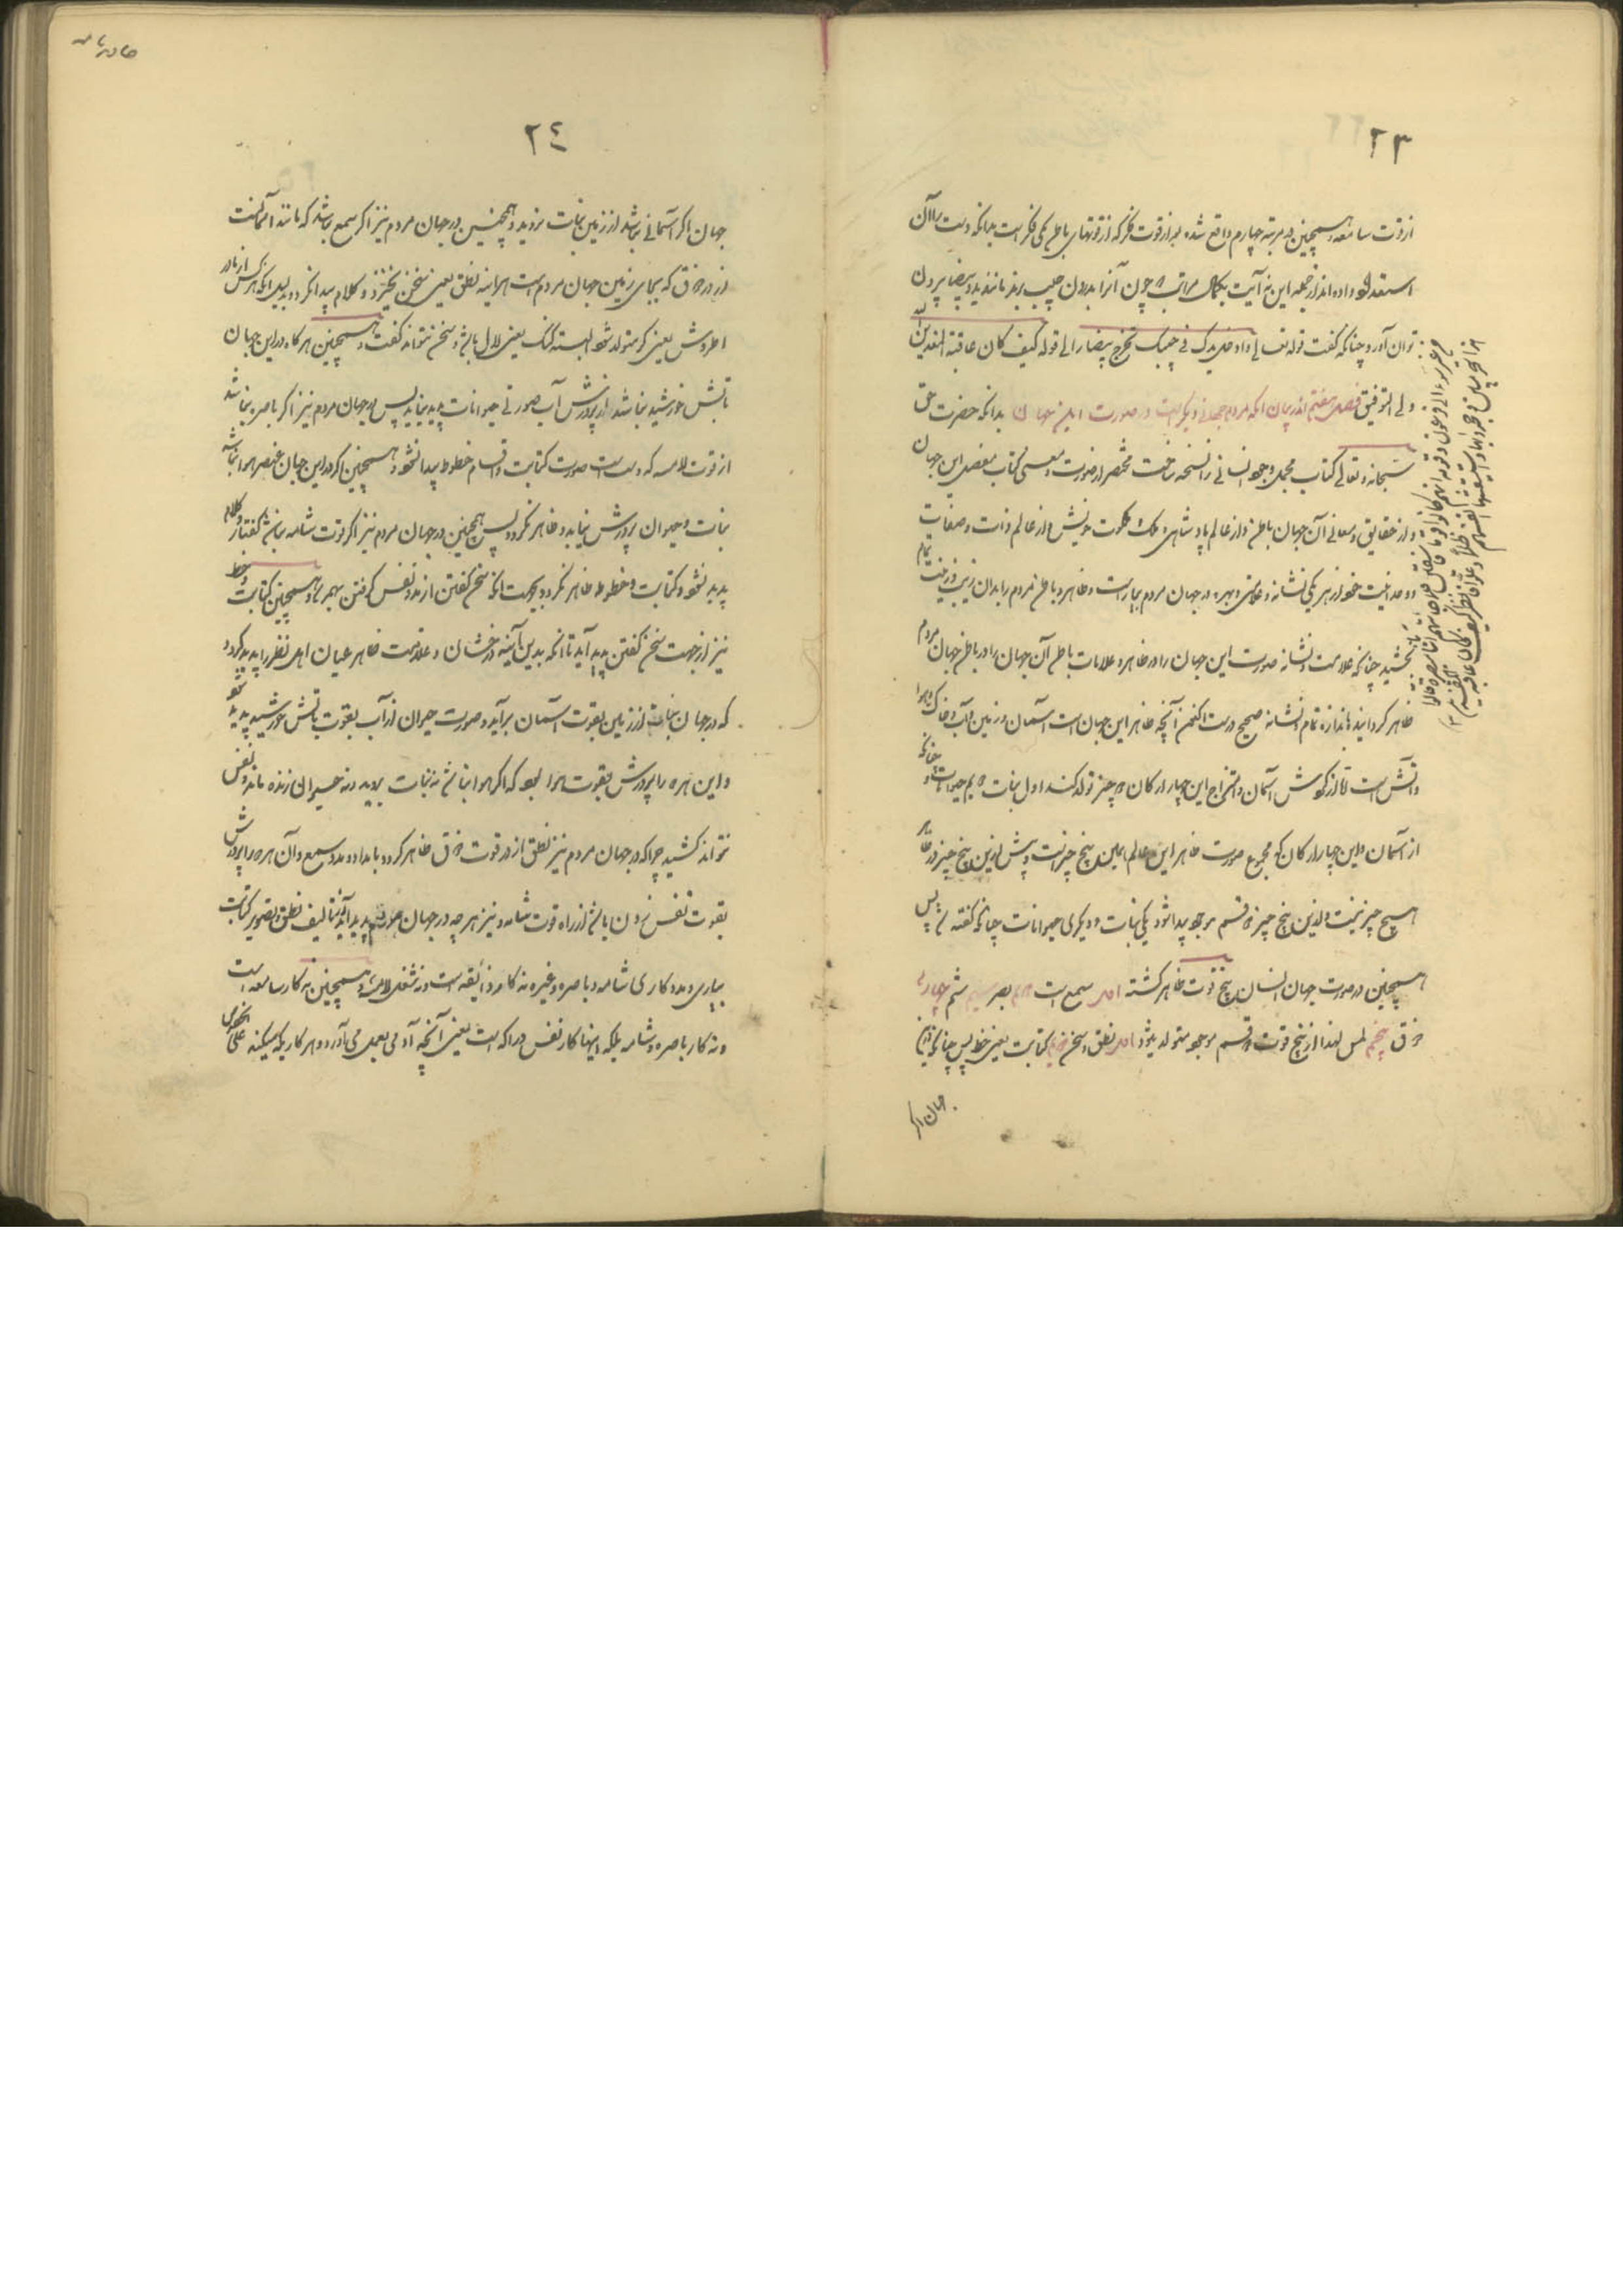 ٢٣
از قوت سامعه و همچنین در مرتبه چهارم واقع شده بعد از قوت فکر که از قوتهای باطن یکی فکر است بدانکه دست را آن
استعداد داده‌اند از جمله این نه آیت بکمال مراتب چون آنرا بدرون جیب برند مانند ید بیضا بیرون
توان آورد چنانکه گفت قوله تعالی و ادخل یدک فی جیبک تخرج بیضاء الی قوله کیف کان عاقبة المفسدین
ولی التوفیق فصل هفتم اندر بیان آنکه مردم جهانی دیگر است در صورت این جهان بدانکه حضرت حق
سبحانه و تعالی کتاب مجمل وجود انسانی را نسخه ساخت مختصر از صورت و معنی کتاب مفصل این جهان
و از حقایق و معانی آن جهان باطن و از عالم پادشاهی و ملک و ملکوت خویش و از عالم ذات و صفات
و وحدانیت خود از هر یکی نشانه و علامتی و بهره در جهان مردم بیاراست و ظاهر و باطن مردم را بدان زیب و زینت تمام
بخشید چنانکه علامت و نشانه صورت این جهان را در ظاهر و علامات باطن آن جهان را در باطن جهان مردم
ظاهر گردانید باندازه تمام و نشانه صحیح درست اکنون آنچه ظاهر این جهان است آسمان و زمین و آب و خاک و هوا
و آتش است تا از گردش آسمان و امتزاج این چهار ارکان دو چیز تولد کند اول نبات دویم حیوانات و چنانکه
از آسمان و این چهار ارکان که مجموع صورت ظاهر این عالم همین پنج چیز است و بیش ازین پنج چیز در ظاهر
هیچ چیز نیست و ازین پنج چیز دو قسم موجود پیدا شود یکی نبات و دیگری حیوانات چنانکه گفته شد پس
همچنین در صورت جهان انسان پنج قوت ظاهر گشته اول سمع است دویم بصر سیم شم چهارم
ذوق پنجم لمس لهذا از پنج قوت دو قسم موجود متولد میشود اول نطق و سخن دویم کتابت یعنی خط پس چنانکه درین
جهان اگر
٢٤
جهان اگر آسمانی نباشد از زمین نبات نروید و همچنین در جهان مردم نیز اگر سمع نباشد که مانند آسمانست
از ذوق که بجای زمین جهان مردم است هرآینه نطق یعنی سخن نخیزد و کلام پیدا نگردد بدلیل آنکه هر کس از مادر
اطروش یعنی کر متولد شود البته گنگ یعنی لال باشد و سخن نتواند گفت و همچنین هرگاه در این جهان
تابش خورشید نباشد از پرورش آب صورتی حیوانات پدید نیاید پس در جهان مردم نیز اگر باصره نباشد
از قوت لامسه که دست است صورت کتابت و اقسام خطوط پیدا نشود و همچنین اگر در این جهان عنصر هوا نباشد
نبات و حیوان پرورش نیابد و ظاهر نگردد پس همچنین در جهان مردم نیز اگر قوت شامه نباشد گفتار و کلام
پدید نشود و کتابت و خطوط ظاهر نگردد بجهت آنکه سخن گفتن از مدد نفس گرفتن بهم رسد و همچنین کتابت و خط
نیز از جهت سخن گفتن پدید آید تا آنکه بدین آئینه درخشان و علامت ظاهر عیان اهل نظر را پدید گردد
که در جهان نبات از زمین بقوت آسمان برآید و صورت حیوان از آب بقوت تابش خورشید پدید شود
و این هر دو را پرورش بقوت هوا بود که اگر هوا نباشد نه نبات بروید و نه حیوانی زنده ماند و نفس
نتواند کشید چراکه در جهان مردم نیز نطق از در قوت ذوق ظاهر گردد بامداد و مدد سمع و آن هر دو را پرورش
بقوت نفس زدن باشد از راه قوت شامه و نیز هر چه در جهان مردم پدید آید از تالیف نطق و تصویر کتابت
بیاری و مددکاری شامه و باصره و غیره نه کار ذائقه است و نه شغل لامسه و همچنین نه کار سامعه است
و نه کار باصره و شامه بلکه اینها کار نفس دراکه است یعنی آنچه آدمی بعمل می‌آورد و هر کاریکه میکند